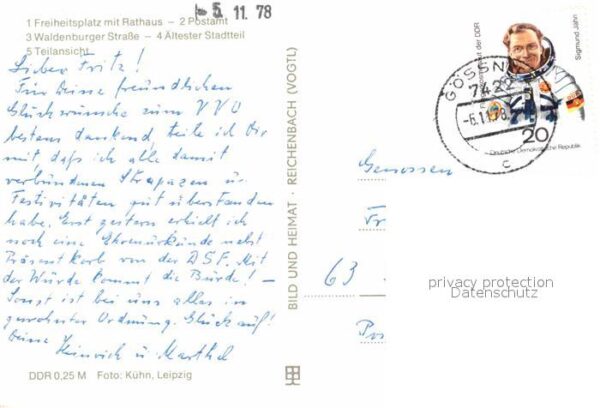 5. 11. 78
1 Freiheitsplatz mit Rathaus – 2 Postamt
3 Waldenburger Straße – 4 Ältester Stadtteil
5 Teilansicht
Lieber Fritz!
Für Deine freundlichen
Glückwünsche zum
bestens dankend, teile ich Dir
mit, daß ich alle damit
verbundenen Strapazen u.
Festivitäten gut überstanden
habe. Erst gestern erhielt ich
noch eine Ehrenurkunde nebst
Präsentkorb von der DSF. Mit
der Würde kommt die Bürde! –
Sonst ist bei uns alles in
gewohnter Ordnung. Glück auf!
Deine Heinrich u. Marthel
DDR 0,25 M Foto: Kühn, Leipzig
BILD UND HEIMAT · REICHENBACH (VOGTL)
der DDR
Sigmund Jähn
20
Deutsche Demokratische Republik
GÖSSN
7422
-6.11.78
c
Genossen
Fr
63
Po
privacy protection
Datenschutz